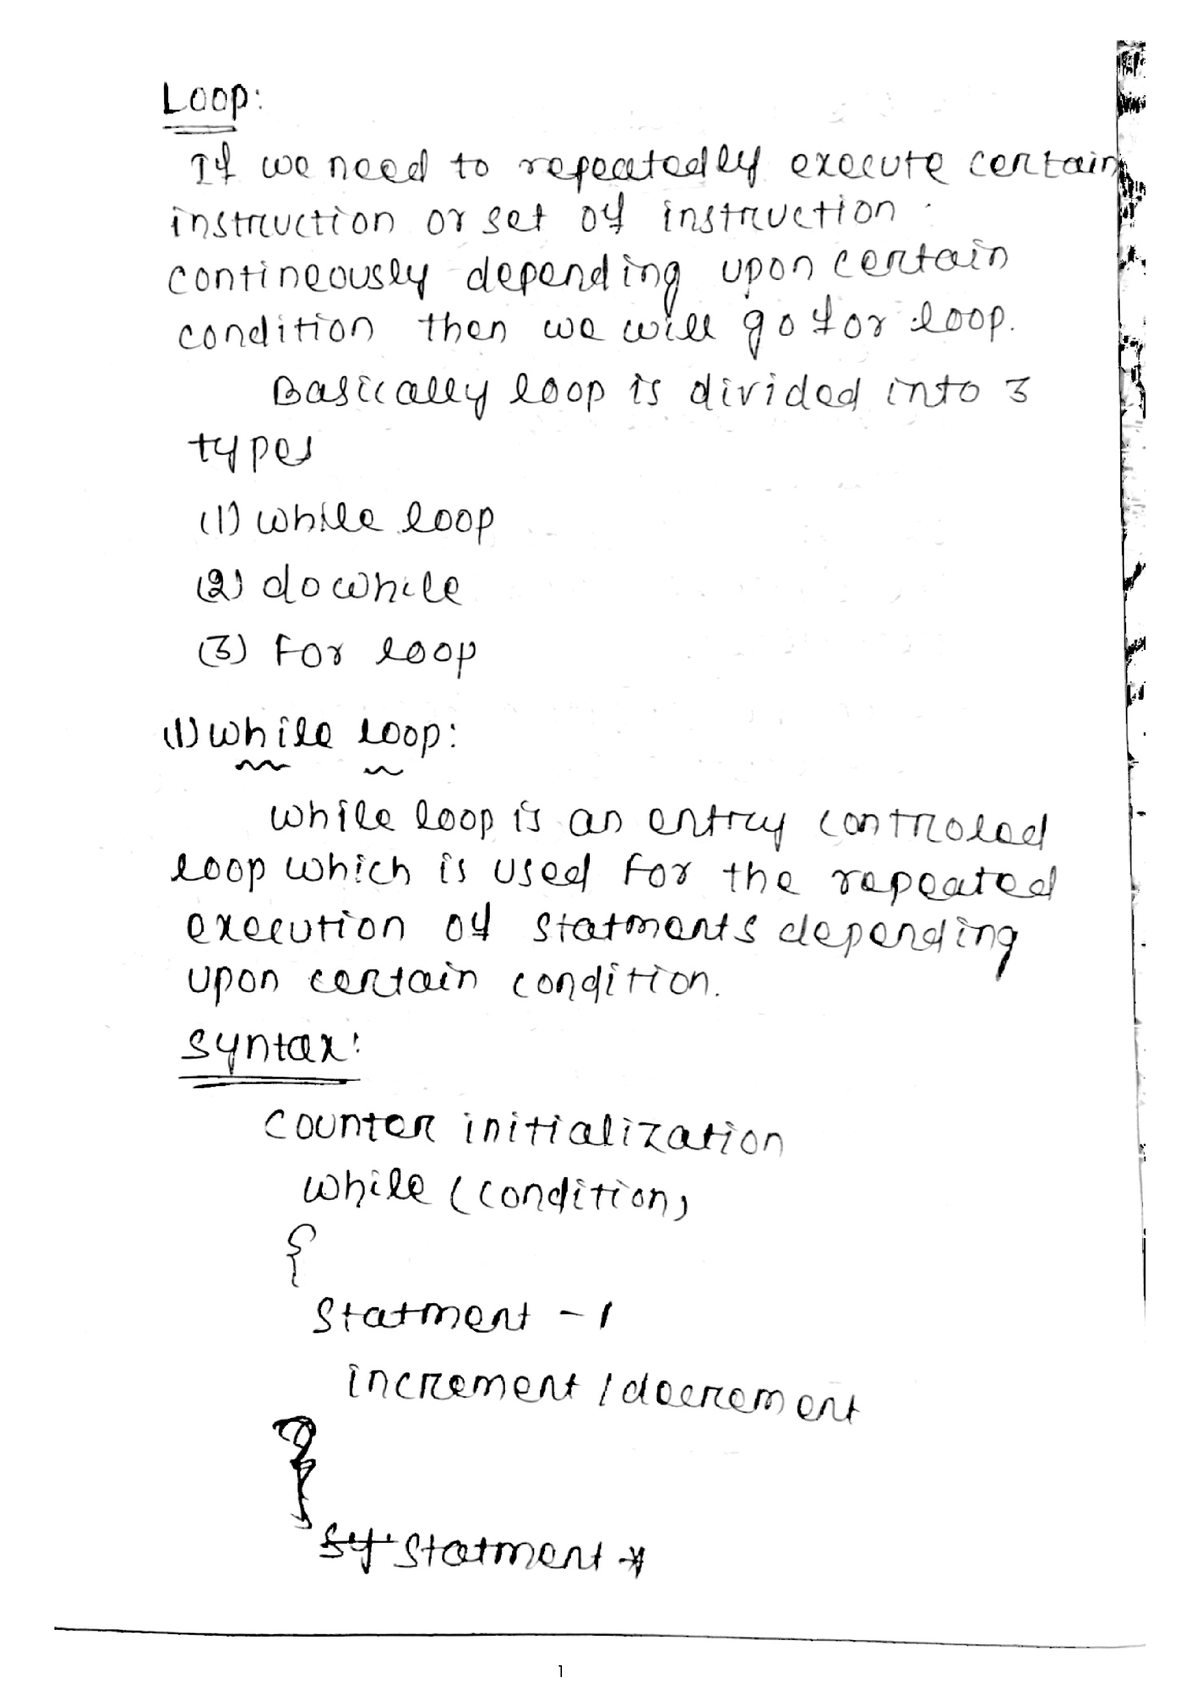 Loop:
If we need to repeatedly execute certain
instruction or set of instruction
contineously depending upon certain
condition then we will go for loop.
Basically loop is divided into 3
types
(1) while loop
(2) do while
(3) For loop
(1) while loop:
while loop is an entry controled
loop which is used for the repeated
execution of statments depending
upon certain condition.
Syntax:
counter initialization
while (condition)
{
Statment - 1
increment / decrement
}
Statment
1